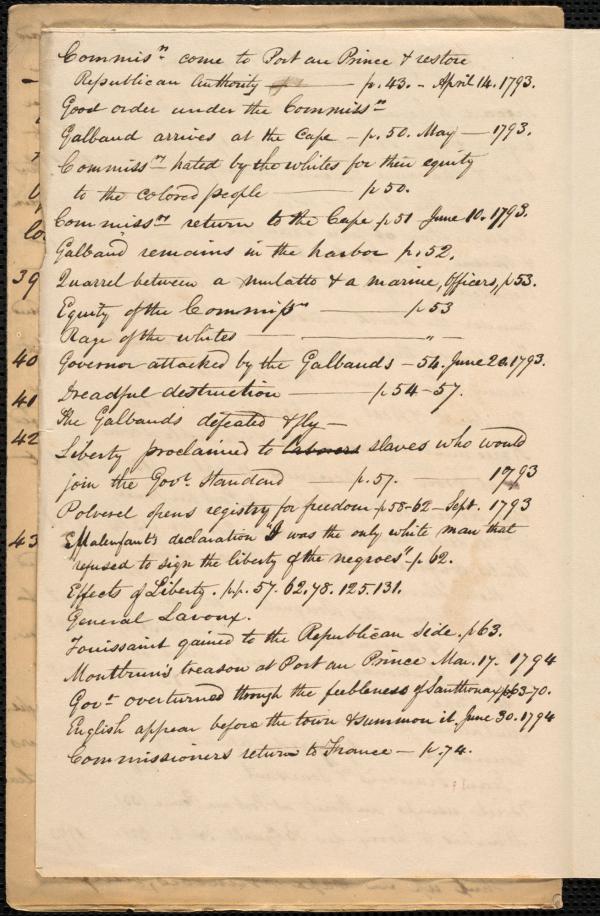 Commisrs. come to Port au Prince & restore
Republican Authority —— p. 43. - April 14. 1793.
Good order under the Commissrs
Galbaud arrives at the Cape — p. 50. May — 1793.
Commissrs hated by the whites for their equity
to the colored people —— p 50.
Commissrs return to the Cape p 51 June 10. 1793.
Galbaud remains in the harbor p. 52.
39 Quarrel between a mulatto & a marine, Officers, p 53.
Equity of the Commissrs —— p 53
Rage of the whites —— —— " —
40 Governor attacked by the Galbauds — 54. June 20. 1793.
41 Dreadful destruction —— p. 54-57.
The Galbauds defeated & fly —
42 Liberty proclaimed to laborers slaves who would
join the Govt. Standard —— p. 57. —— 1793
Polverel opens registry for freedom p 58-62 — Sept. 1793
43 Malenfant's declaration "I was the only white man that
refused to sign the liberty of the negroes" - p. 62.
Effects of Liberty. pp. 57. 62. 78. 125. 131.
General Lavoux.
Touissaint gained to the Republican side. p 63.
Montbrun's treason at Port au Prince Mar. 17. 1794
Govt. overturned through the feebleness of Santhonax p 63-70.
English appear before the town & summon it. June 30. 1794
Commissioners return to France — p. 74.